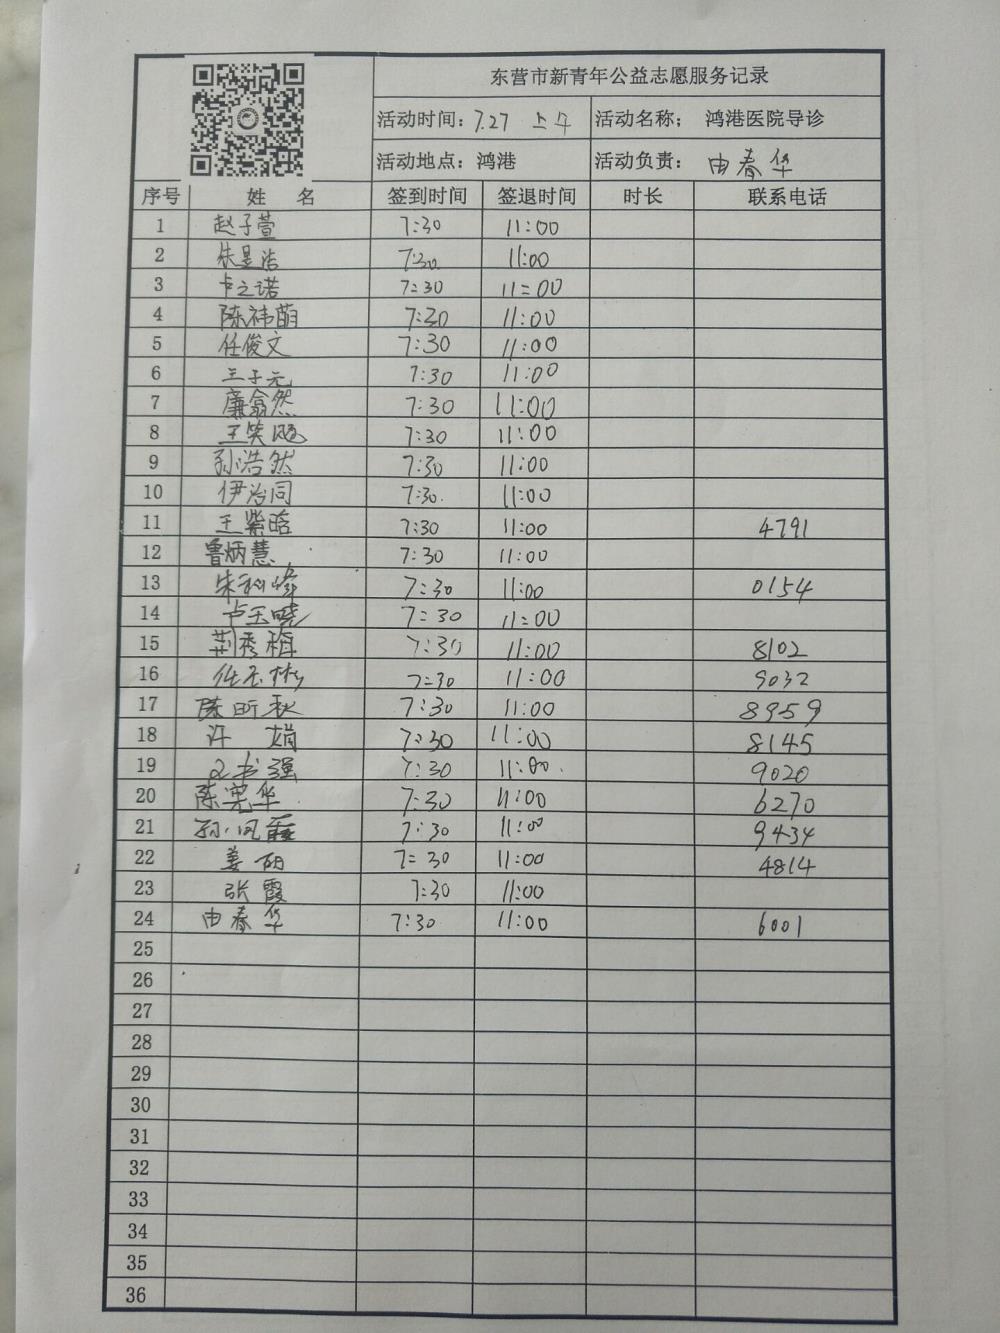 东营市新青年公益志愿服务记录
活动时间：7.27 上午 活动名称； 鸿港医院导诊
活动地点：鸿港 活动负责： 由春华
序号 姓 名 签到时间 签退时间 时长 联系电话
1 赵子萱 7:30 11:00
2 朱昱洁 7:30 11:00
3 卞之诺 7:30 11:00
4 陈祎萌 7:30 11:00
5 任俊文 7:30 11:00
6 王子元 7:30 11:00
7 廉翕然 7:30 11:00
8 王笑 7:30 11:00
9 孙浩然 7:30 11:00
10 伊治同 7:30 11:00
11 王紫晗 7:30 11:00 4791
12 鲁炳慧 7:30 11:00
13 朱 7:30 11:00 0154
14 卢玉晓 7:30 11:00
15 荆秀梅 7:30 11:00 8102
16 任玉彬 7:30 11:00 9032
17 陈昕秋 7:30 11:00 8959
18 许 娟 7:30 11:00 8145
19 书强 7:30 11:00 9020
20 陈宪华 7:30 11:00 6270
21 孙凤霞 7:30 11:00 9434
22 姜 7:30 11:00 4814
23 张霞 7:30 11:00
24 由春华 7:30 11:00 6001
25
26
27
28
29
30
31
32
33
34
35
36